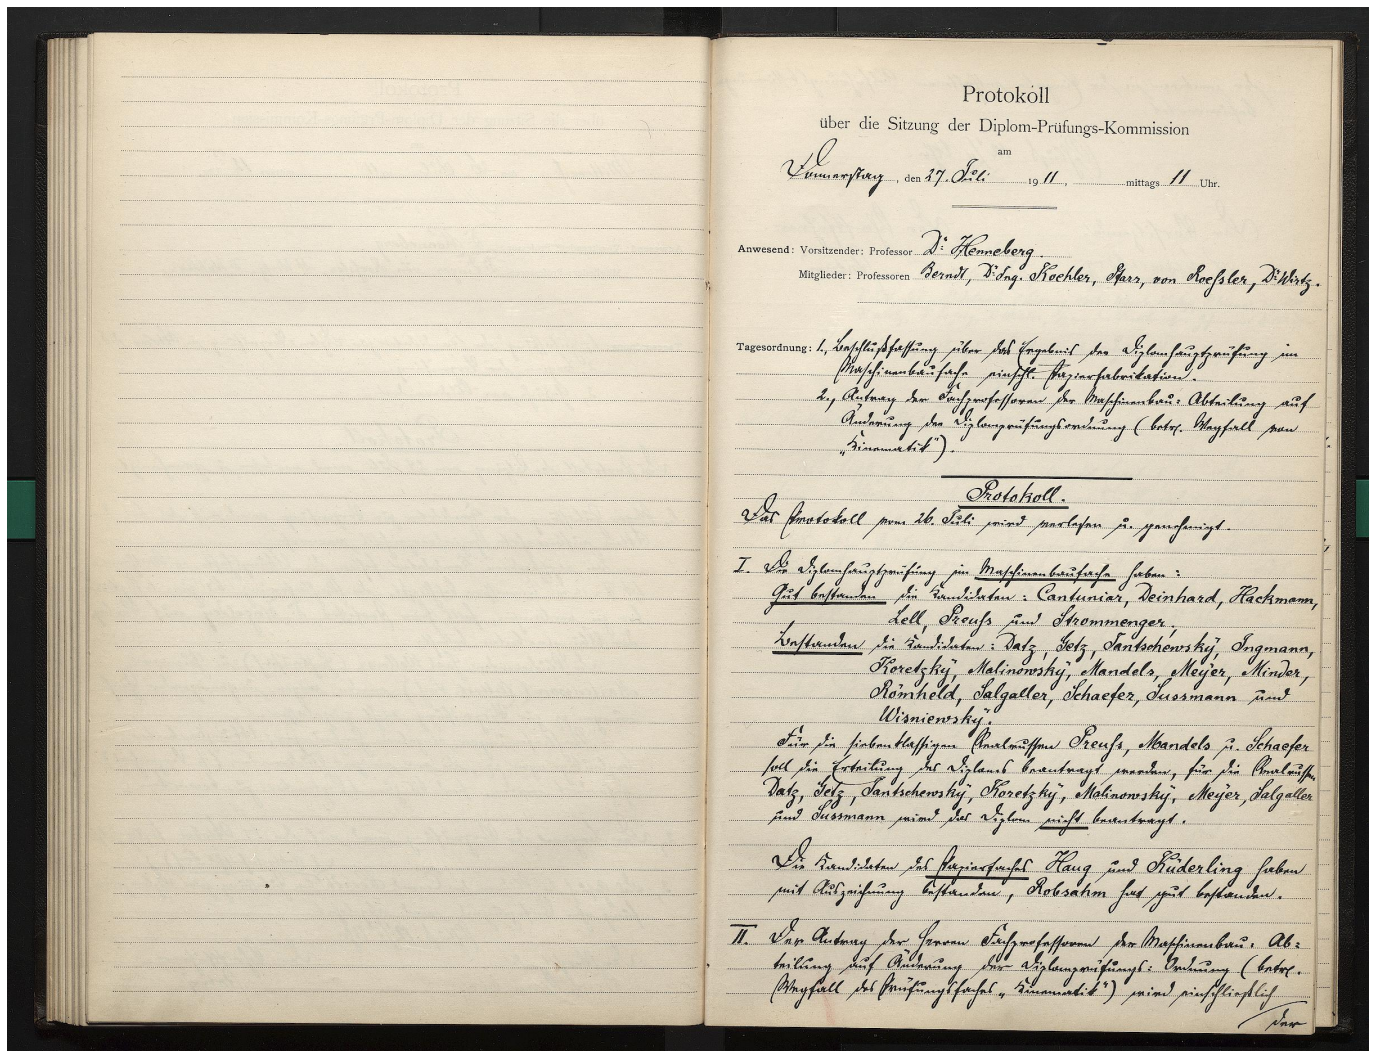 Protokoll
über die Sitzung der Diplom-Prüfungs-Kommission
am
Donnerstag, den 27. Juli 1911, mittags 11 Uhr.
Anwesend: Vorsitzender: Professor Dr. Henneberg.
Mitglieder: Professoren Berndt, Dr. Ing. Koehler, Pfarr, von Roeßler, Dr. Wirtz.
Tagesordnung: 1., Beschlußfassung über das Ergebnis der Diplomhauptprüfung im
Maschinenbaufache einschl. Papierfabrikation.
2., Antrag der Fachprofessoren der Maschinenbau= Abteilung auf
Änderung der Diplomprüfungsordnung (betr. Wegfall von
„Kinematik").
Protokoll.
Das Protokoll vom 26. Juli wird verlesen u. genehmigt.
I. Die Diplomhauptprüfung im Maschinenbaufache haben:
Gut bestanden die Kandidaten: Cantuniar, Deinhard, Hackmann,
Lell, Preuß und Strommenger,
Bestanden die Kandidaten: Datz, Getz, Jantschewský, Ingmann,
Koretzký, Malinowský, Mandels, Meÿer, Minder,
Römheld, Salgaller, Schaefer, Sussmann und
Wisniewský.
Für die siebenklassigen Realrussen Preuß, Mandels u. Schaefer
soll die Erteilung des Diploms beantragt werden, für die Realrussen
Datz, Getz, Jantschewský, Koretzký, Malinowský, Meÿer, Salgaller
und Sussmann wird das Diplom nicht beantragt.
Die Kandidaten des Papierfaches Haug und Küderling haben
mit Auszeichnung bestanden, Robsahm hat gut bestanden.
II. Der Antrag der Herren Fachprofessoren der Maschinenbau= Ab=
teilung auf Änderung der Diplomprüfungs= Ordnung (betr.
Wegfall des Prüfungsfaches „Kinematik") wird einschließlich
der